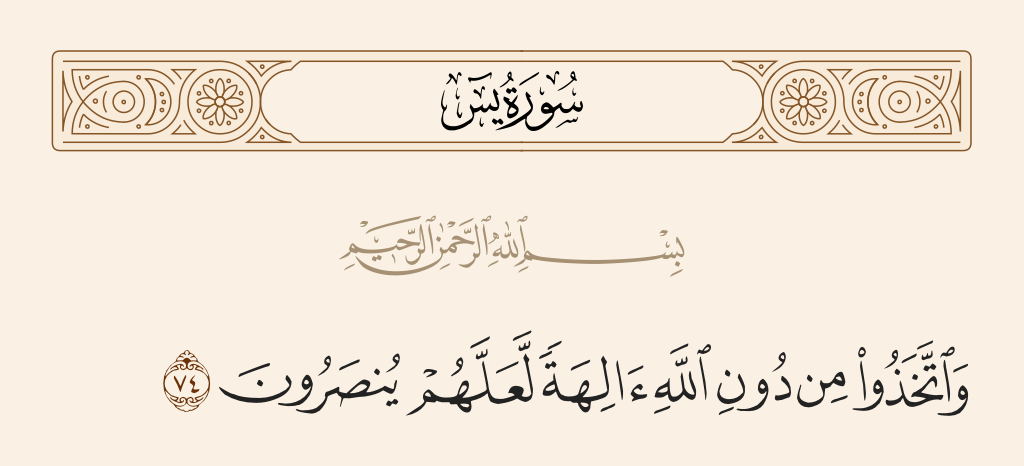 سُورَةُ يسٓ
بِسْمِ ٱللَّهِ ٱلرَّحْمَٰنِ ٱلرَّحِيمِ
وَٱتَّخَذُوا۟ مِن دُونِ ٱللَّهِ ءَالِهَةً لَّعَلَّهُمْ يُنصَرُونَ ٧٤